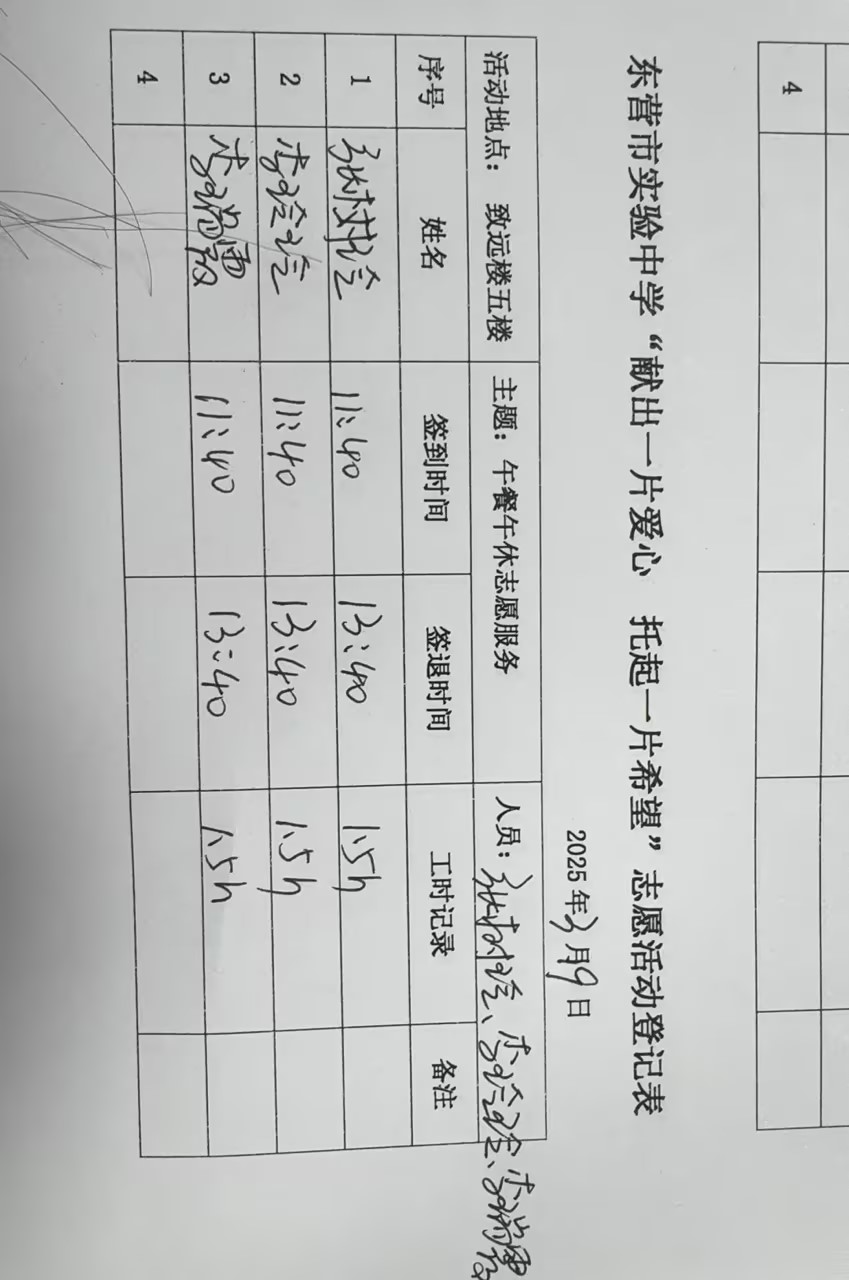 4
东营市实验中学“献出一片爱心 托起一片希望”志愿活动登记表
2025年3月9日
活动地点： 致远楼五楼 主题：午餐午休志愿服务 人员：
序号 姓名 签到时间 签退时间 工时记录 备注
1 11:40 13:40 1.5h
2 11:40 13:40 1.5h
3 11:40 13:40 1.5h
4